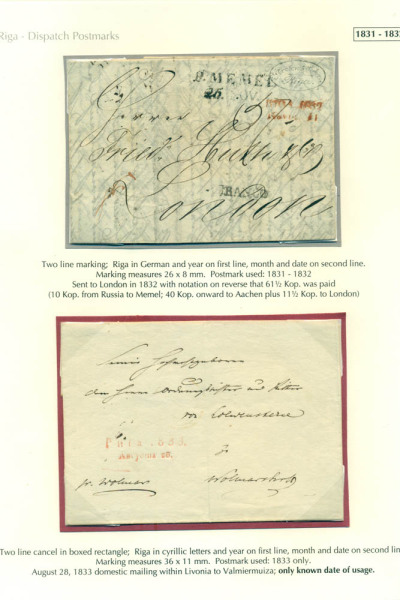 Riga - Dispatch Postmarks
1831 - 183
P. MEMEL
26.
Herren
Fried. Huth & Co
FRANCO
London
Two line marking; Riga in German and year on first line, month and date on second line.
Marking measures 26 x 8 mm. Postmark used: 1831 - 1832
Sent to London in 1832 with notation on reverse that 61½ Kop. was paid
(10 Kop. from Russia to Memel; 40 Kop. onward to Aachen plus 11½ Kop. to London)
den Herrn und Ritter
von
Рига 1833.
Августа 28.
zu
pr. Wolmar
Wolmarshoff
Two line cancel in boxed rectangle; Riga in cyrillic letters and year on first line, month and date on second lin
Marking measures 36 x 11 mm. Postmark used: 1833 only.
August 28, 1833 domestic mailing within Livonia to Valmiermuiza; only known date of usage.